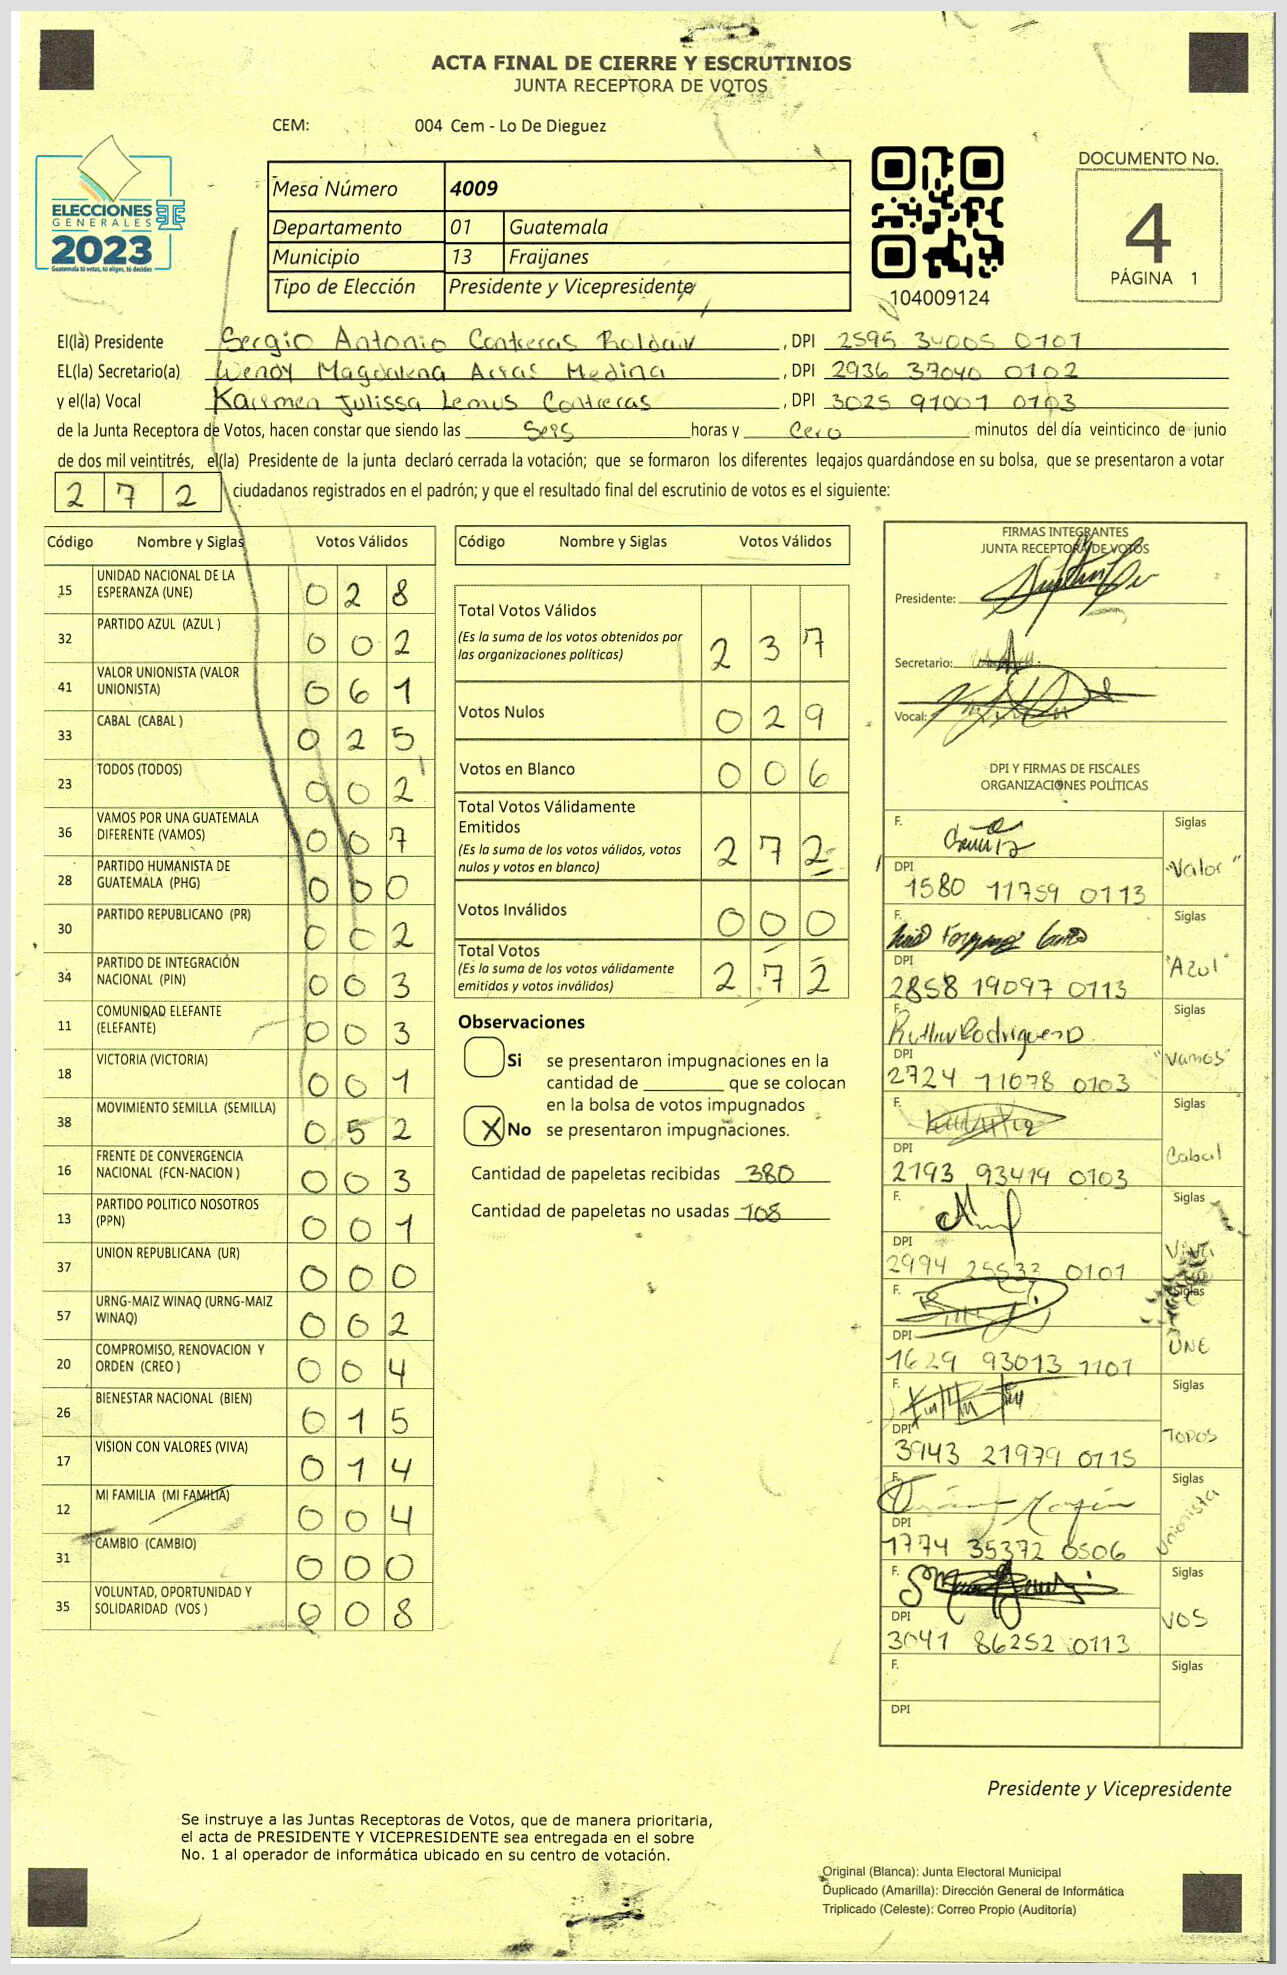 ACTA FINAL DE CIERRE Y ESCRUTINIOS
JUNTA RECEPTORA DE VOTOS
CEM: 004 Cem - Lo De Dieguez
ELECCIONES
GENERALES
2023
Guatemala tú votas, tú eliges, tú decides
Mesa Número 4009
Departamento 01 Guatemala
Municipio 13 Fraijanes
Tipo de Elección Presidente y Vicepresidente
104009124
DOCUMENTO No.
4
PÁGINA 1
El(la) Presidente Sergio Antonio Contreras Roldán, DPI 2595 34005 0101
EL(la) Secretario(a) Wendy Magdalena Arias Medina, DPI 2936 37040 0102
y el(la) Vocal Karmen Julissa Lemus Contreras, DPI 3025 91001 0103
de la Junta Receptora de Votos, hacen constar que siendo las Seis horas y Cero minutos del día veinticinco de junio
de dos mil veintitrés, el(la) Presidente de la junta declaró cerrada la votación; que se formaron los diferentes legajos guardándose en su bolsa, que se presentaron a votar
272 ciudadanos registrados en el padrón; y que el resultado final del escrutinio de votos es el siguiente:
Código Nombre y Siglas Votos Válidos
15 UNIDAD NACIONAL DE LA ESPERANZA (UNE) 028
32 PARTIDO AZUL (AZUL ) 002
41 VALOR UNIONISTA (VALOR UNIONISTA) 061
33 CABAL (CABAL ) 025
23 TODOS (TODOS) 002
36 VAMOS POR UNA GUATEMALA DIFERENTE (VAMOS) 007
28 PARTIDO HUMANISTA DE GUATEMALA (PHG) 000
30 PARTIDO REPUBLICANO (PR) 002
34 PARTIDO DE INTEGRACIÓN NACIONAL (PIN) 003
11 COMUNIDAD ELEFANTE (ELEFANTE) 003
18 VICTORIA (VICTORIA) 001
38 MOVIMIENTO SEMILLA (SEMILLA) 052
16 FRENTE DE CONVERGENCIA NACIONAL (FCN-NACION ) 003
13 PARTIDO POLITICO NOSOTROS (PPN) 001
37 UNION REPUBLICANA (UR) 000
57 URNG-MAIZ WINAQ (URNG-MAIZ WINAQ) 002
20 COMPROMISO, RENOVACION Y ORDEN (CREO ) 004
26 BIENESTAR NACIONAL (BIEN) 015
17 VISION CON VALORES (VIVA) 014
12 MI FAMILIA (MI FAMILIA) 004
31 CAMBIO (CAMBIO) 000
35 VOLUNTAD, OPORTUNIDAD Y SOLIDARIDAD (VOS ) 008
Código Nombre y Siglas Votos Válidos
Total Votos Válidos 237
(Es la suma de los votos obtenidos por
las organizaciones políticas)
Votos Nulos 029
Votos en Blanco 006
Total Votos Válidamente
Emitidos 272
(Es la suma de los votos válidos, votos
nulos y votos en blanco)
Votos Inválidos 000
Total Votos 272
(Es la suma de los votos válidamente
emitidos y votos inválidos)
Observaciones
Si se presentaron impugnaciones en la
cantidad de ________ que se colocan
en la bolsa de votos impugnados
X No se presentaron impugnaciones.
Cantidad de papeletas recibidas 380
Cantidad de papeletas no usadas 108
FIRMAS INTEGRANTES
JUNTA RECEPTORA DE VOTOS
Presidente:
Secretario:
Vocal:
DPI Y FIRMAS DE FISCALES
ORGANIZACIONES POLÍTICAS
F. Siglas
DPI "Valor"
1580 11759 0113
F. Siglas
DPI "Azul"
2858 19097 0113
F. Siglas
DPI "Vamos"
2724 11078 0103
F. Siglas
DPI Cabal
2193 93419 0103
F. Siglas
DPI Viva
2994 25532 0101
F. Siglas
DPI UNE
1629 93013 1101
F. Siglas
DPI TODOS
3943 21979 0115
F. Siglas
DPI Unionista
1774 35372 0506
F. Siglas
DPI VOS
3041 86252 0113
F. Siglas
DPI
Presidente y Vicepresidente
Se instruye a las Juntas Receptoras de Votos, que de manera prioritaria,
el acta de PRESIDENTE Y VICEPRESIDENTE sea entregada en el sobre
No. 1 al operador de informática ubicado en su centro de votación.
Original (Blanca): Junta Electoral Municipal
Duplicado (Amarilla): Dirección General de Informática
Triplicado (Celeste): Correo Propio (Auditoría)